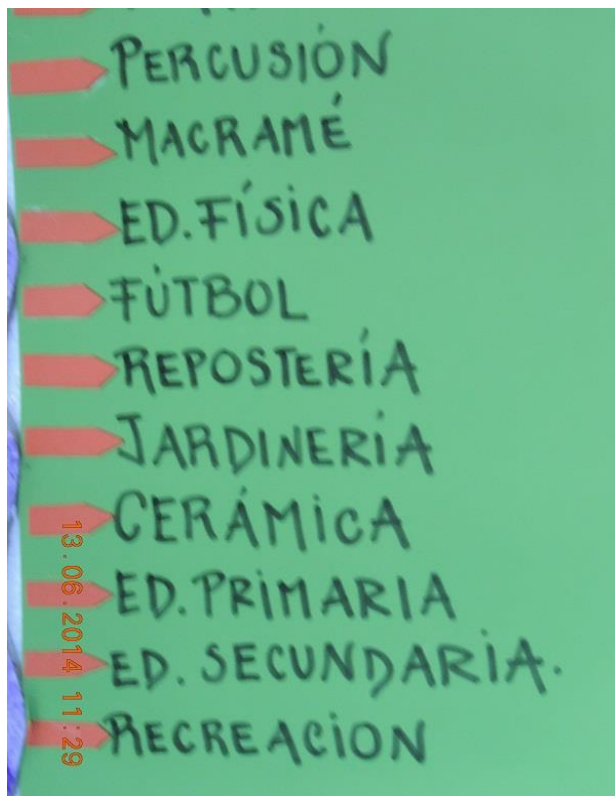 PERCUSIÓN
MACRAMÉ
ED. FÍSICA
FÚTBOL
REPOSTERÍA
JARDINERÍA
CERÁMICA
ED. PRIMARIA
ED. SECUNDARIA.
RECREACION
13.06.2014 11:29